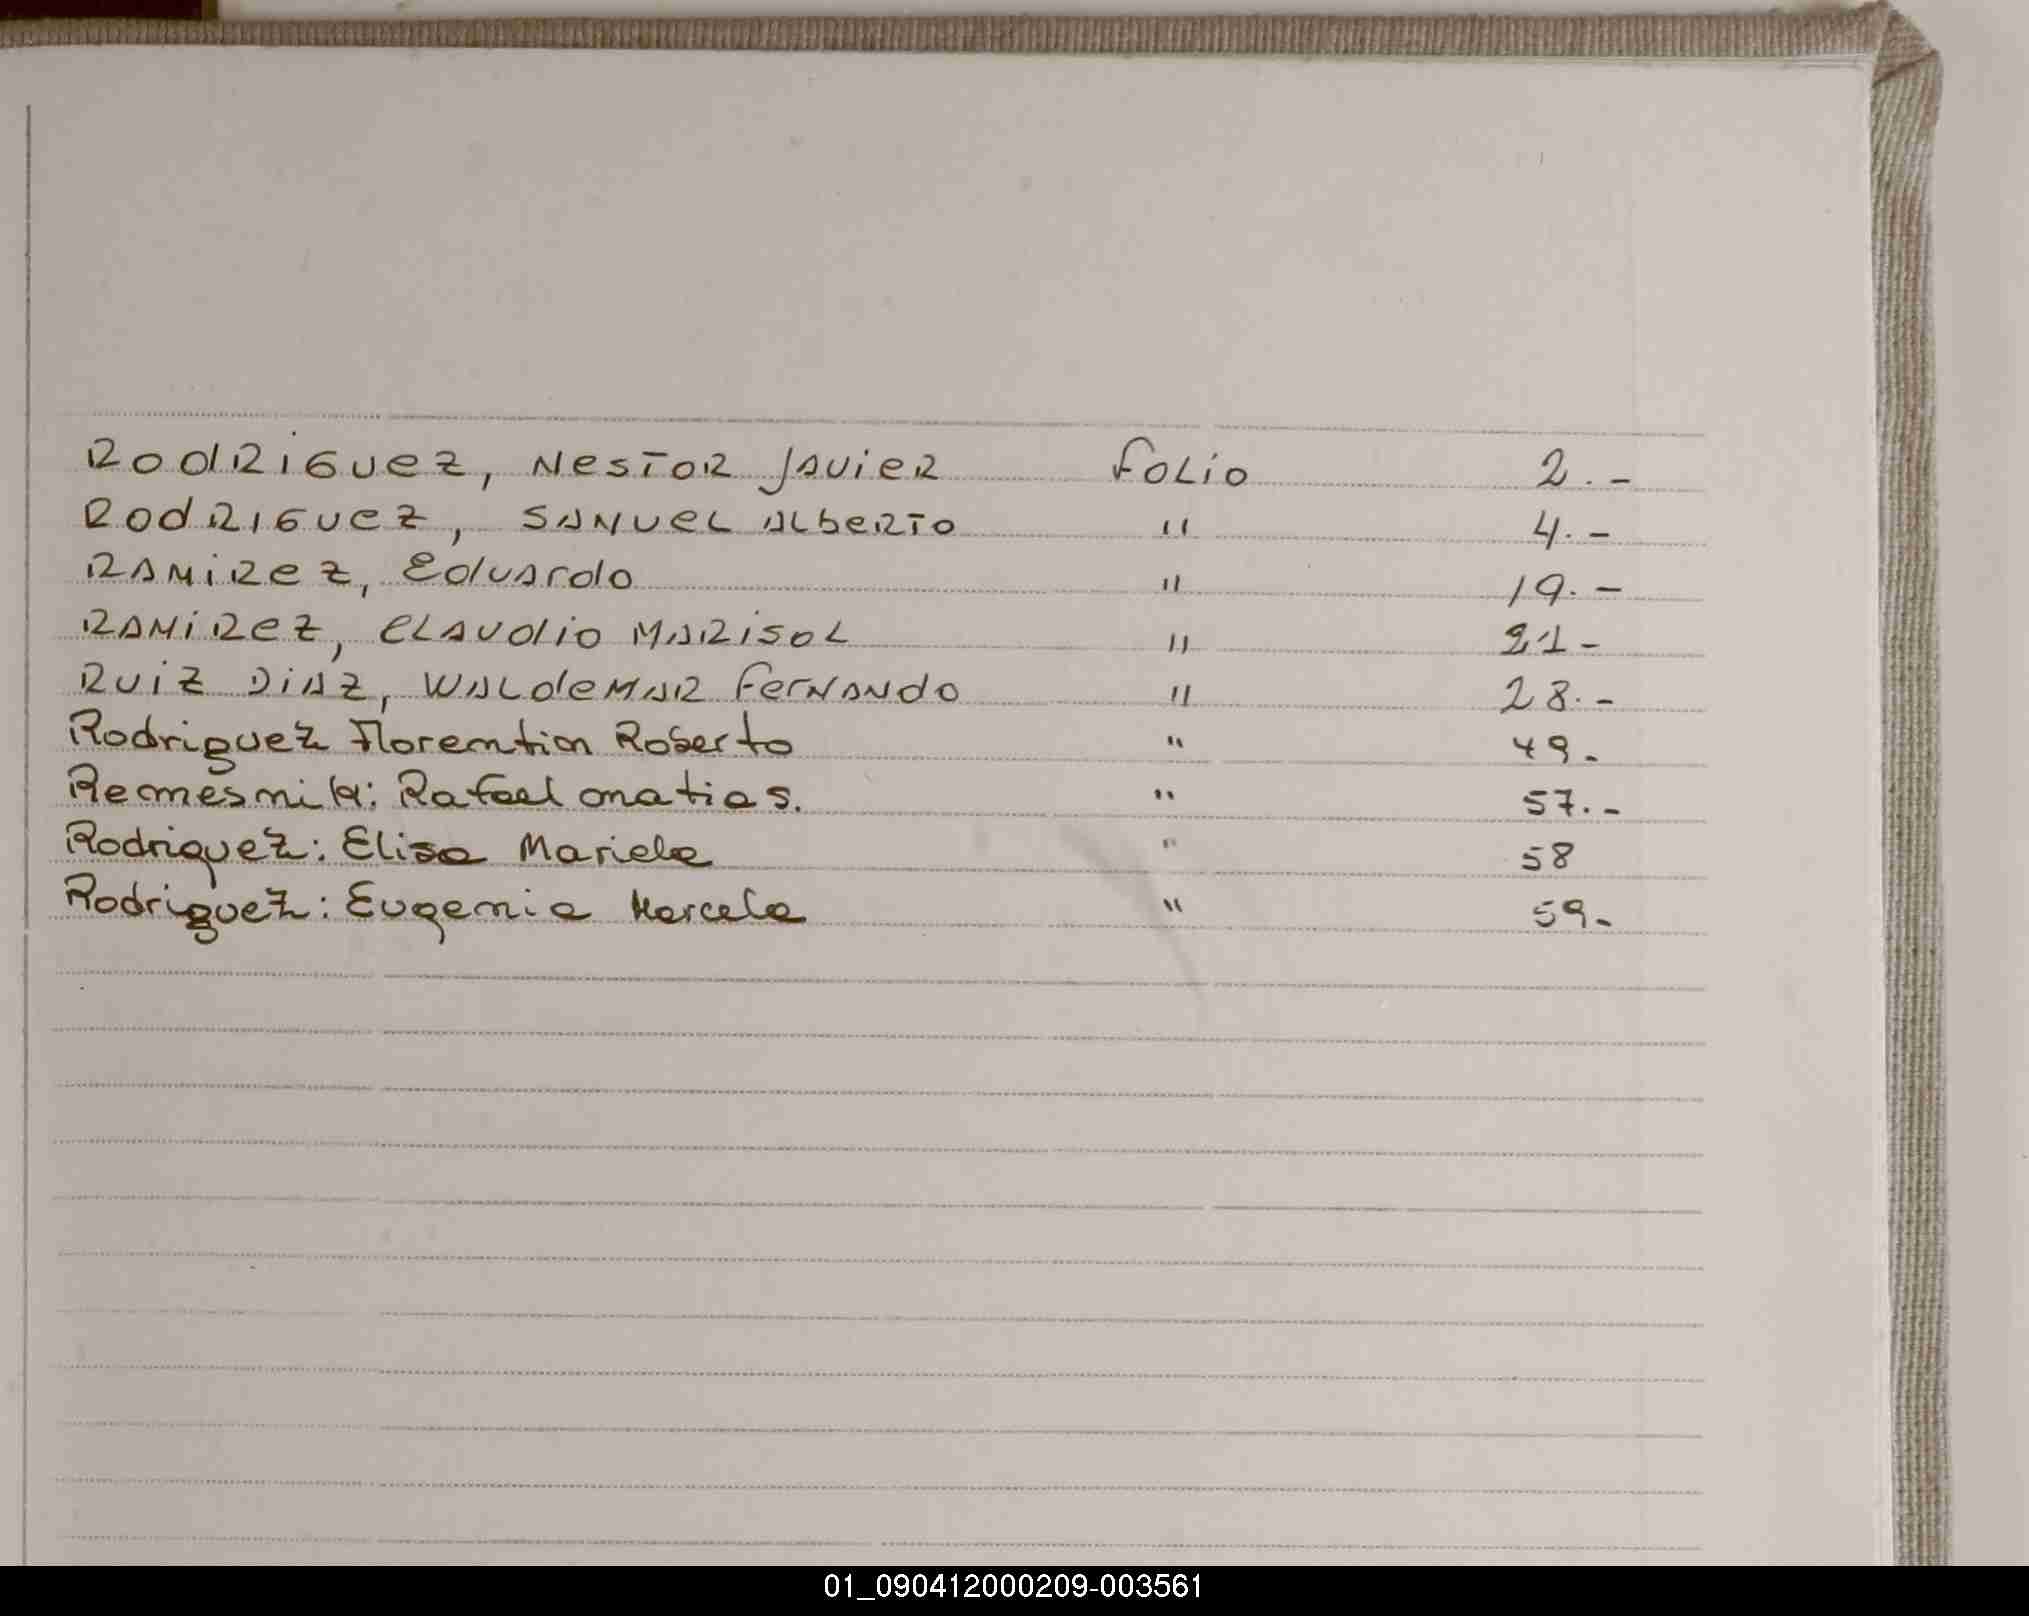 RodRiGuez, NesTOR JAvieR FoLio 2.-
RodRiGuez, SAMUeL ALbeRTo " 4.-
RAMiRez, EdUArdo " 19.-
RAMiRez, CLAUdio MARisoL " 21-
RUiZ DiAZ, WALdeMAR FerNANdo " 28.-
Rodriguez Florentin Roberto " 49-
Remesnik: Rafael matias. " 57.-
Rodriguez: Elisa Mariela " 58
Rodriguez: Eugenia Marcela " 59-
01_090412000209-003561